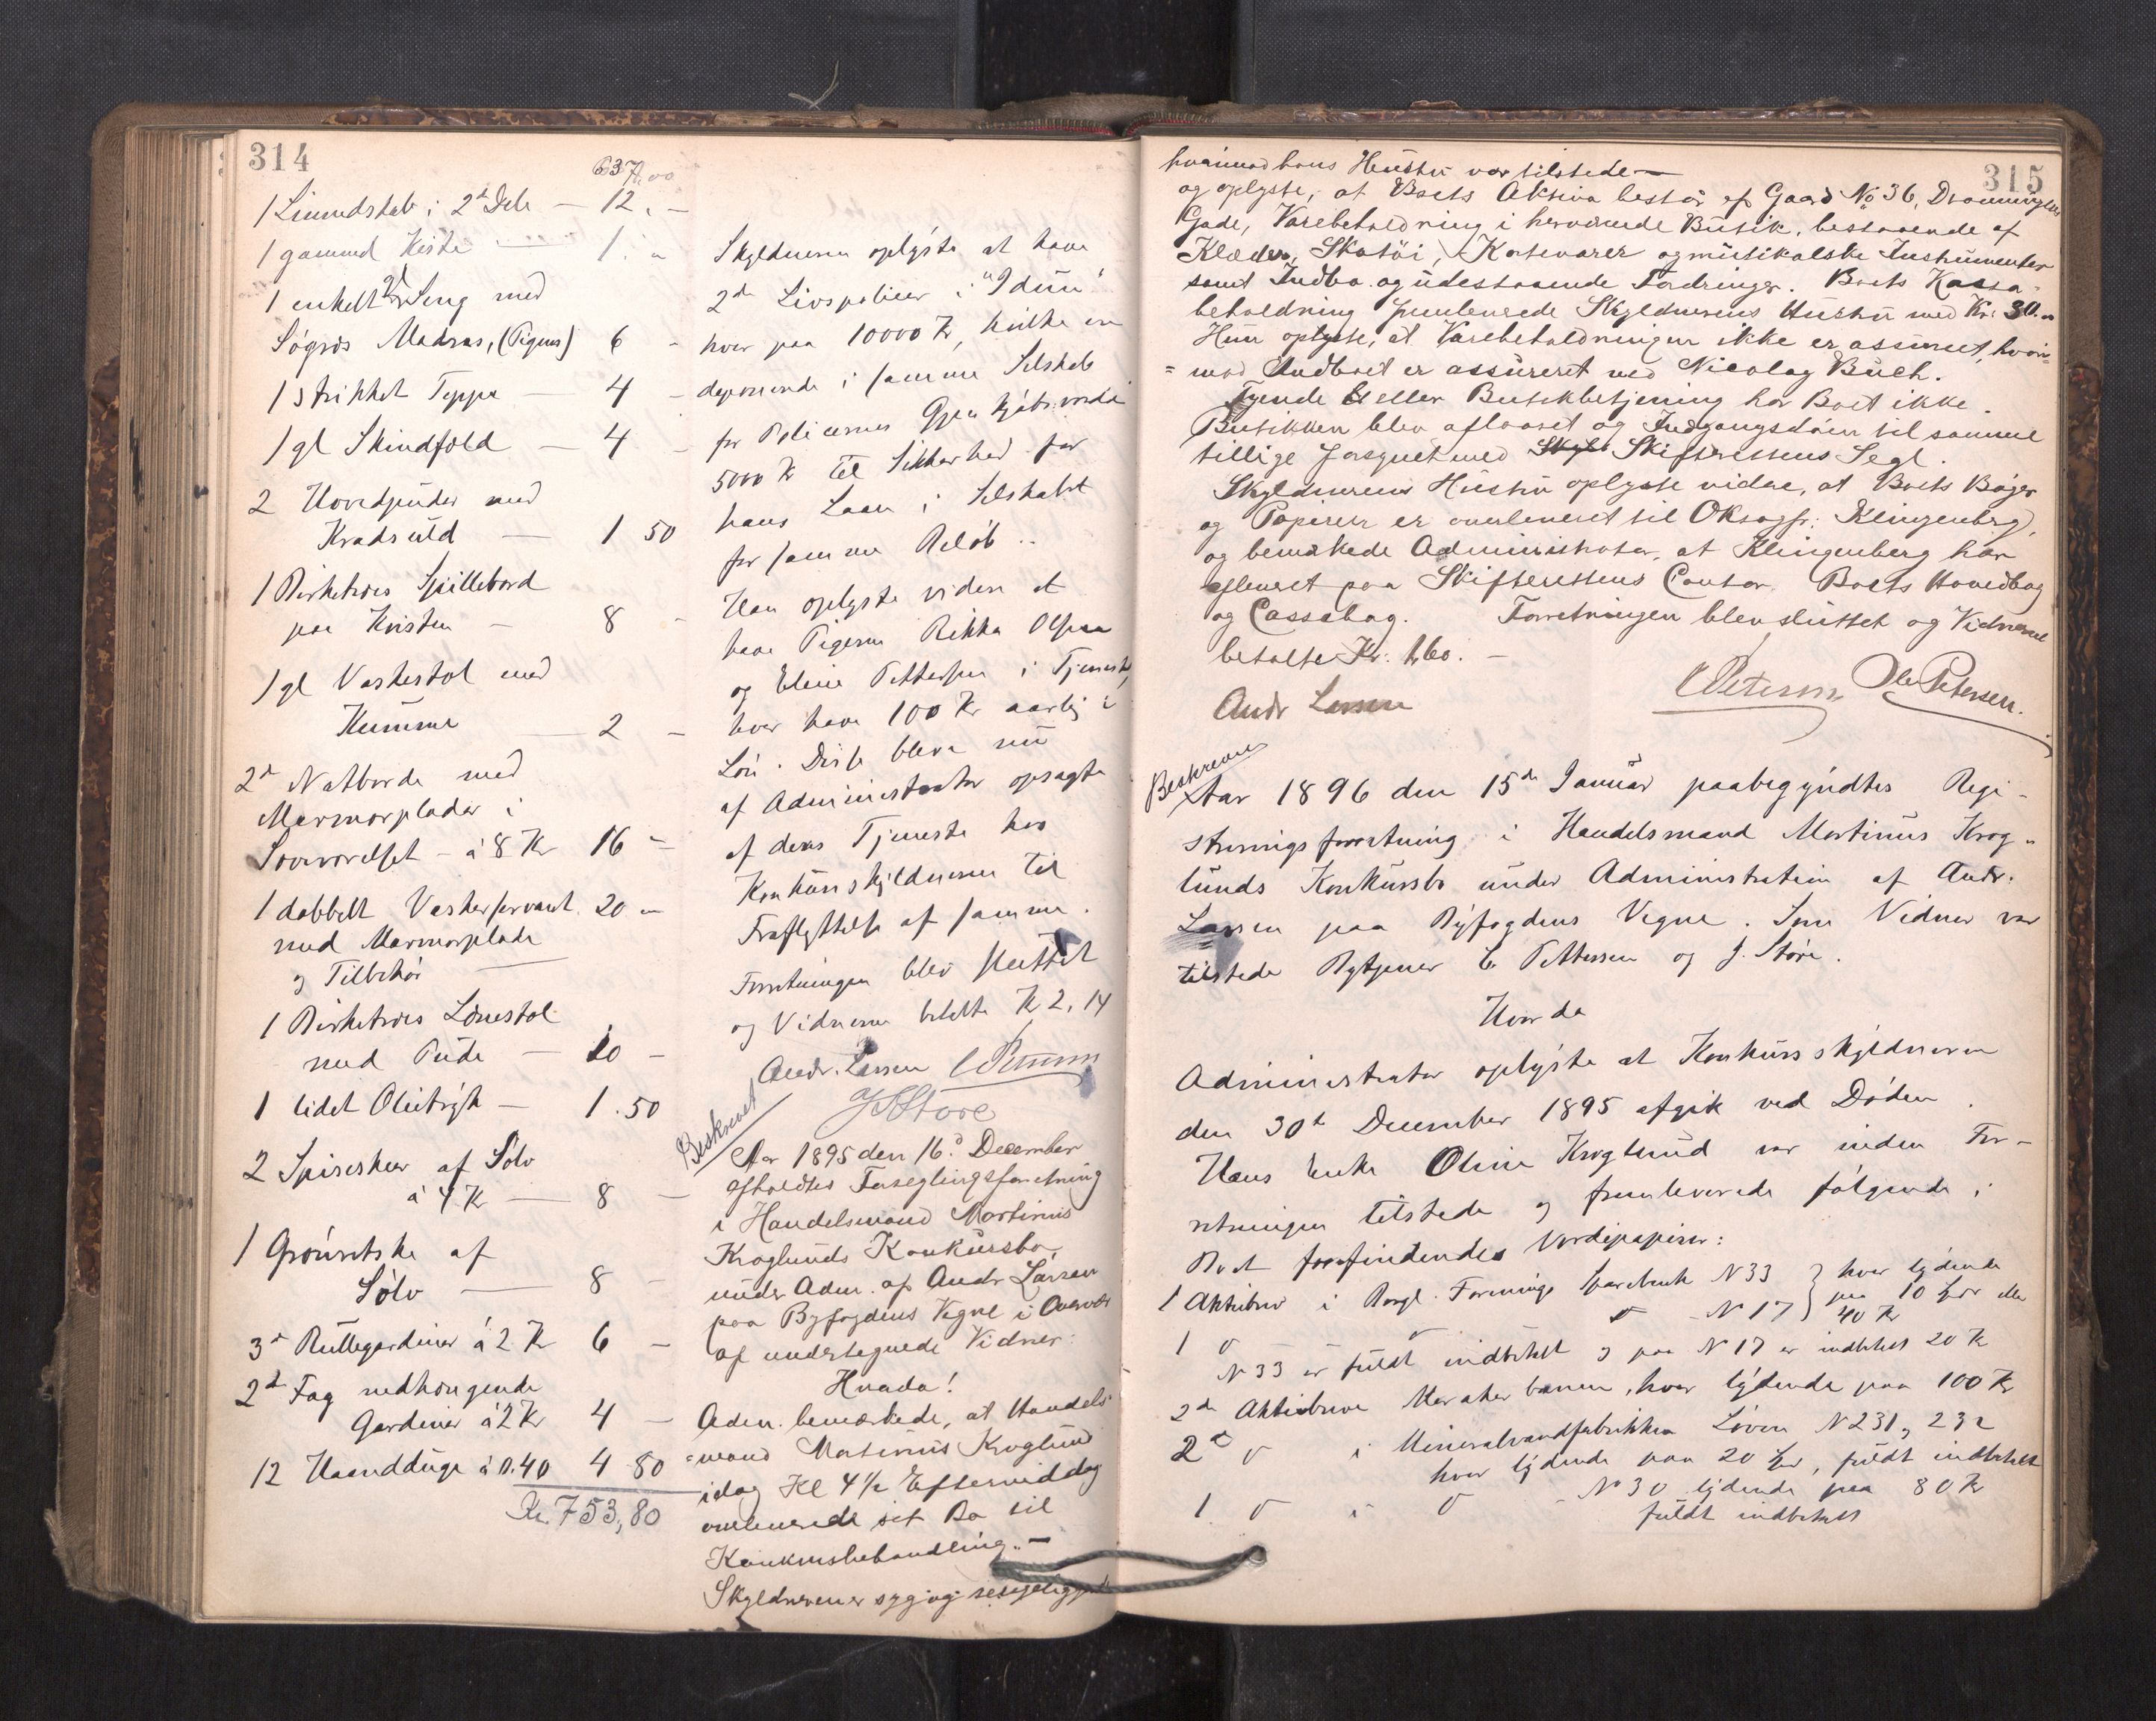 314
637,00
1 Linnedskab i 2de Dele — 12. -
1 gammel Kiste — 1. -
1 enkelt Seng med
Søgræs Madras, (Pigens) 6 -
1 strikket Teppe — 4 -
1 gl Skindfæld — 4 -
2 Hovedpuder med
Kraduld — 1 50
1 Birketræes Spillebord
paa Kvisten — 8 -
1 gl Vaskestol med
Kumme — 2 -
2de Natborde med
Marmorplader i
Soveværelset - à 8 Kr 16 -
1 dobbelt Vaskeservant 20 -
med Marmorplade
og Tilbehør —
1 Birketræes Lænestol
med Pude — 10 -
1 lidet Olietryk — 1.50
2 Spiseskeer af Sølv
à 4 Kr — 8 -
1 Grønsetske af
Sølv — 8 -
3de Rullegardiner à 2 Kr 6 -
2de Fag nedhængende
Gardiner à 2 Kr 4 -
12 Haandduge à 0.40 4 80
Kr. 753,80
Skyldneren oplyste at have
2de Livspolicer i "Idun"
hver paa 10000 Kr, hvilke ere
deponerede i samme Selskab
for Policernes Gjenkjøbsværdi
5000 Kr til Sikkerhed for
hans Laan i Selskabet
for samme Beløb..
Han oplyste videre at
have Pigerne Rikka Olsen
og Eline Pettersen i Tjeneste,
hver have 100 Kr aarlig i
Løn. Disse bleve nu
af Administrator opsagte
af deres Tjeneste hos
Konkursskyldneren til
Fraflyttelse af samme.
Forretningen blev sluttet
og Vidnerne betalte Kr 2,14
Andr. Larsen C Petersen
J Støre
Beskrevet
Aar 1895 den 16de December
afholdtes Forseglingsforretning
i Handelsmand Martinus
Kroglunds Konkursbo,
under Adm. af Andr Larsen
paa Byfogdens Vegne i Overvær
af undertegnede Vidner:
Hvorda!
Adm. bemærkede, at Handels
=mand Martinus Kroglund
idag Kl 4½ Eftermiddag
overleverede sit Bo til
Konkursbehandling. —
Skyldneren er syg og sengeliggende
315
hvorimod hans Hustru var tilstede —
og oplyste, at Boets Aktiva består af Gaard No 36, Dronningens
Gade, Varebeholdning i herværende Butik, bestaaende af
Klæder, Skotøi, Kortevarer og musikalske Instrumenter
samt Indbo og udestaaende Fordringer. Boets Kassa-
beholdning fremleverede Skyldnerens Hustru med Kr. 30.-
Hun oplyste, at Varebeholdningen ikke er assureret, hvori-
= mod Indboet er assureret ved Nicolay Buch.
Tyende eller Butikbetjening har Boet ikke.
Butikken blev aflaaset og Indgangsdøren til samme
tillige forsynet med Skifterettens Segl.
Skyldnerens Hustru oplyste videre, at Boets Bøger
og Papirer er overleveret til OKsagfr. Klingenberg,
og bemærkede Administrator, at Klingenberg har
afleveret paa Skifterettens Contor Boets Hovedbog
og Cassabog. Forretningen blev sluttet og Vidnerne
betalte Kr. 1.60. —
Andr Larsen C Petersen Ole Petersen.
Beskreven
Aar 1896 den 15de Januar paabegyndtes Regi-
streringsforretning i Handelsmand Martinus Krog-
lunds Konkursbo under Administration af Andr.
Larsen paa Byfogdens Vegne. Som Vidner var
tilstede Bytjener C. Pettersen og J. Støre.
Hvorda
Administrator oplyste at Konkursskyldneren
den 30te December 1895 afgik ved Døden.
Hans Enke Oline Kroglund var under For-
retningen tilstede og fremleverede følgende i
Boet forefindendes Værdipapirer:
1 Aktiebrev i Borgl. Forenings Sparebank N 33 } hver lydende
1 " " " - N 17 } paa 10 Spdr eller 40 Kr
N 33 er fuldt indbetalt og paa N 17 er indbetalt 20 Kr
2de Aktiebreve Merakerbanen, hver lydende paa 100 Kr
2de " i Mineralvandfabrikken Løven N 231, 232
hver lydende paa 20 Spd, fuldt indbetalt
1 " i " N 30 lydende paa 80 Kr
fuldt indbetalt